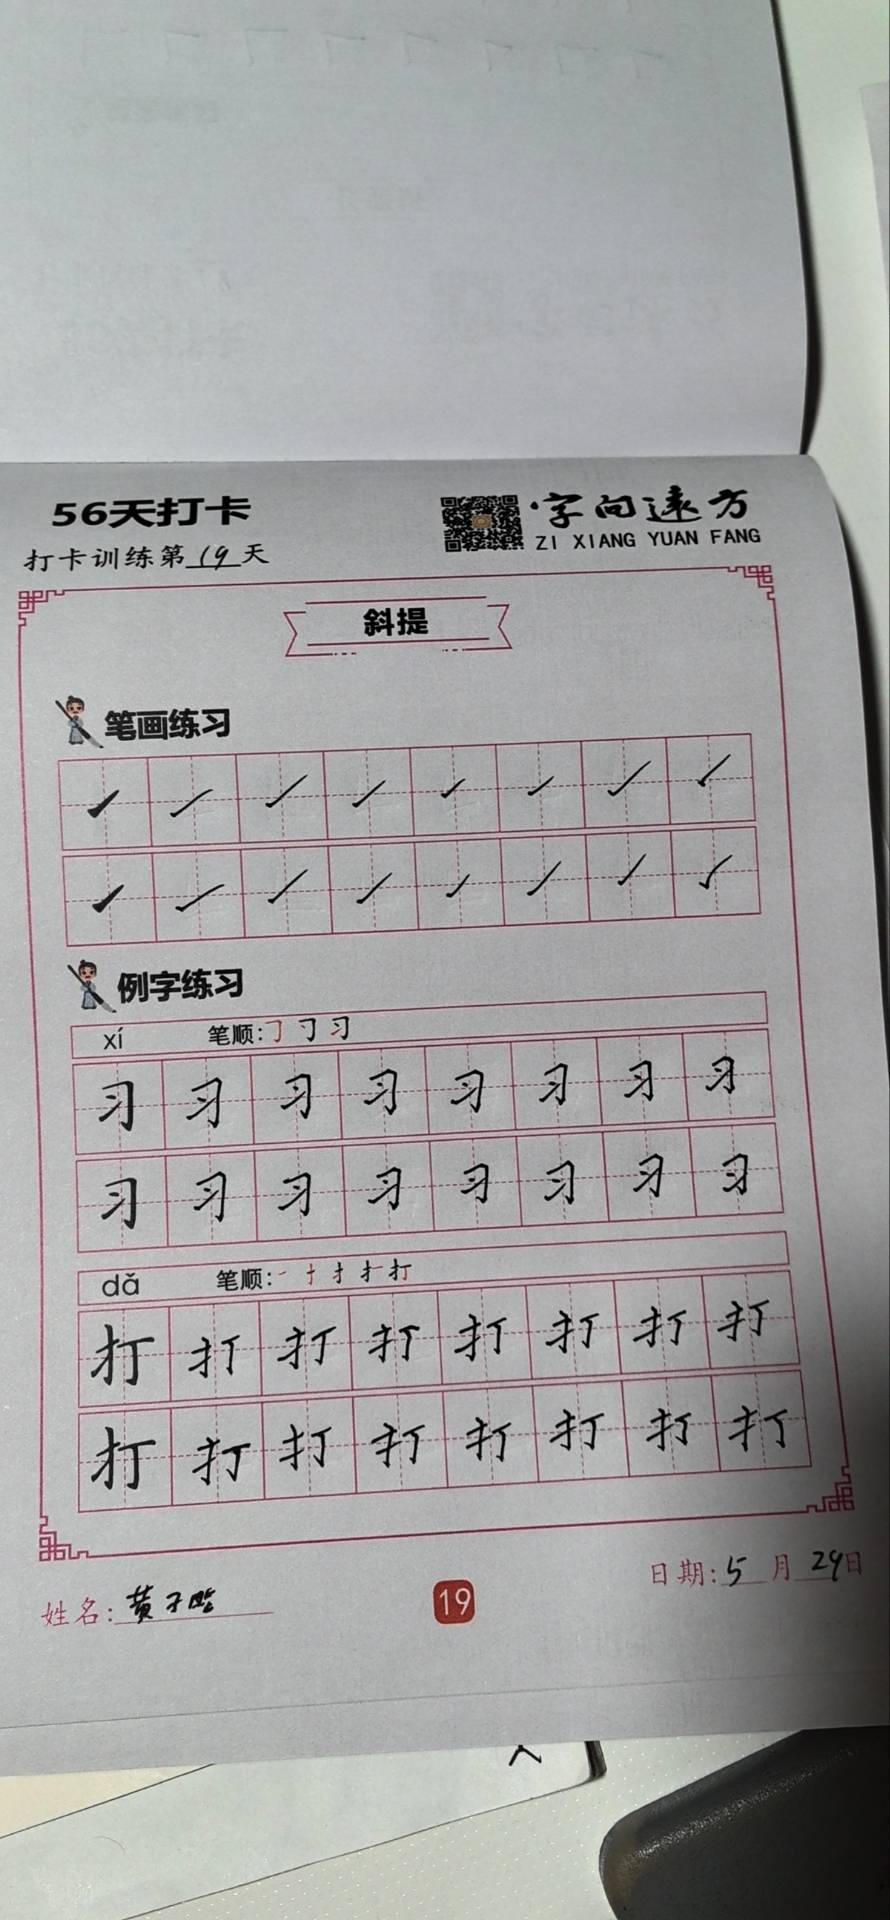 56天打卡
字向远方
ZI XIANG YUAN FANG
打卡训练第19天
斜提
笔画练习
例字练习
xí 笔顺:
习习习习习习习习
习习习习习习习习
dǎ 笔顺: 一 扌 打
打打打打打打打打
打打打打打打打打
日期:5月29日
姓名:黄子
19